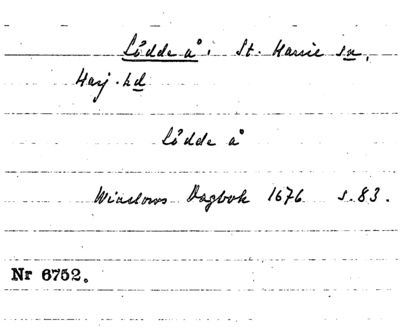 Lödde å. St. Harrie sn,
Harj. hd
Lödde å
Winslows Dagbok 1676 s. 83.
Nr 6752.